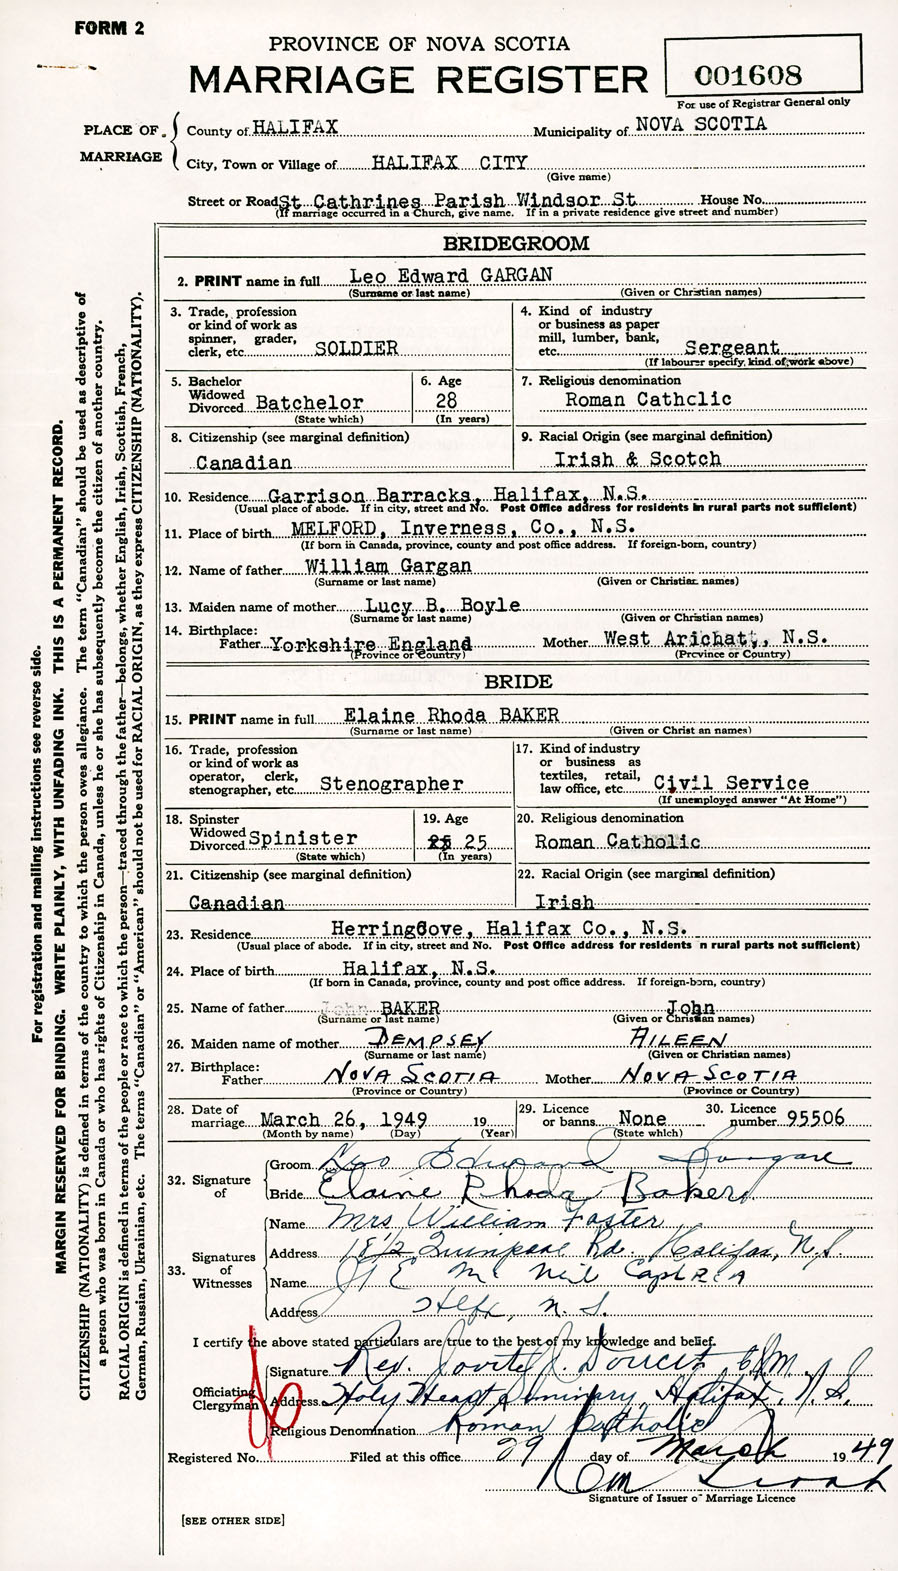 FORM 2
PROVINCE OF NOVA SCOTIA
MARRIAGE REGISTER
001608
For use of Registrar General only
PLACE OF MARRIAGE
County of HALIFAX Municipality of NOVA SCOTIA
City, Town or Village of HALIFAX CITY
(Give name)
Street or Road St Cathrines Parish Windsor St House No.
(If marriage occurred in a Church, give name. If in a private residence give street and number)
BRIDEGROOM
2. PRINT name in full Leo Edward GARGAN
(Surname or last name) (Given or Christian names)
3. Trade, profession or kind of work as spinner, grader, clerk, etc. SOLDIER
4. Kind of industry or business as paper mill, lumber, bank, etc. Sergeant
(If labourer specify, kind of work above)
5. Bachelor Widowed Divorced Batchelor
(State which)
6. Age 28
(In years)
7. Religious denomination
Roman Cathclic
8. Citizenship (see marginal definition)
Canadian
9. Racial Origin (see marginal definition)
Irish & Scotch
10. Residence Garrison Barracks, Halifax, N.S.
(Usual place of abode. If in city, street and No. Post Office address for residents in rural parts not sufficient)
11. Place of birth MELFORD, Inverness, Co., N.S.
(If born in Canada, province, county and post office address. If foreign-born, country)
12. Name of father William Gargan
(Surname or last name) (Given or Christian names)
13. Maiden name of mother Lucy B. Boyle
(Surname or last name) (Given or Christian names)
14. Birthplace:
Father Yorkshire England Mother West Arichatt, N.S.
(Province or Country) (Province or Country)
BRIDE
15. PRINT name in full Elaine Rhoda BAKER
(Surname or last name) (Given or Christ an names)
16. Trade, profession or kind of work as operator, clerk, stenographer, etc. Stenographer
17. Kind of industry or business as textiles, retail, law office, etc. Civil Service
(If unemployed answer "At Home")
18. Spinster Widowed Divorced Spinister
(State which)
19. Age
25
(In years)
20. Religious denomination
Roman Catholic
21. Citizenship (see marginal definition)
Canadian
22. Racial Origin (see marginal definition)
Irish
23. Residence HerringCove, Halifax Co., N.S.
(Usual place of abode. If in city, street and No. Post Office address for residents n rural parts not sufficient)
24. Place of birth Halifax, N.S.
(If born in Canada, province, county and post office address. If foreign-born, country)
25. Name of father John BAKER John
(Surname or last name) (Given or Christian names)
26. Maiden name of mother DEMPSEY AILEEN
(Surname or last name) (Given or Christian names)
27. Birthplace:
Father NOVA SCOTIA Mother NOVA SCOTIA
(Province or Country) (Province or Country)
28. Date of marriage March 26, 1949 19
(Month by name) (Day) (Year)
29. Licence or banns None
(State which)
30. Licence number 95506
32. Signature of
Groom Leo Edward Gargan
Bride Elaine Rhoda Baker
33. Signatures of Witnesses
Name Mrs William Foster
Address Quinpool Rd. Halifax, N.S.
Name Mc Neil Capt RCA
Address Hlfx, N.S.
I certify the above stated particulars are true to the best of my knowledge and belief.
Officiating Clergyman
Signature Rev. J. Doucet
Address Holy Heart Seminary, Halifax, N.S.
Religious Denomination Roman Catholic
Registered No. Filed at this office 29 day of March 1949
Signature of Issuer o Marriage Licence
[SEE OTHER SIDE]
For registration and mailing instructions see reverse side.
MARGIN RESERVED FOR BINDING. WRITE PLAINLY, WITH UNFADING INK. THIS IS A PERMANENT RECORD.
CITIZENSHIP (NATIONALITY) is defined in terms of the country to which the person owes allegiance. The term "Canadian" should be used as descriptive of
a person who was born in Canada or who has rights of Citizenship in Canada, unless he or she has subsequently become the citizen of another country.
RACIAL ORIGIN is defined in terms of the people or race to which the person—traced through the father—belongs, whether English, Irish, Scottish, French,
German, Russian, Ukrainian, etc. The terms "Canadian" or "American" should not be used for RACIAL ORIGIN, as they express CITIZENSHIP (NATIONALITY).